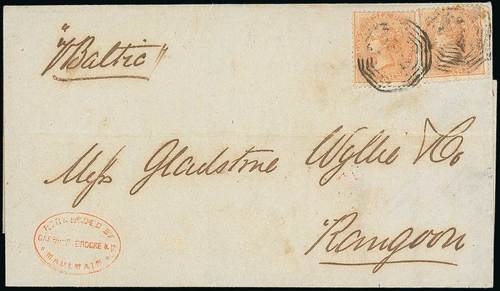 "Baltic"
Messrs Gladstone Wyllie & Co
Rangoon
FORWARDED BY
BROOKE & Co
MAULMAIN